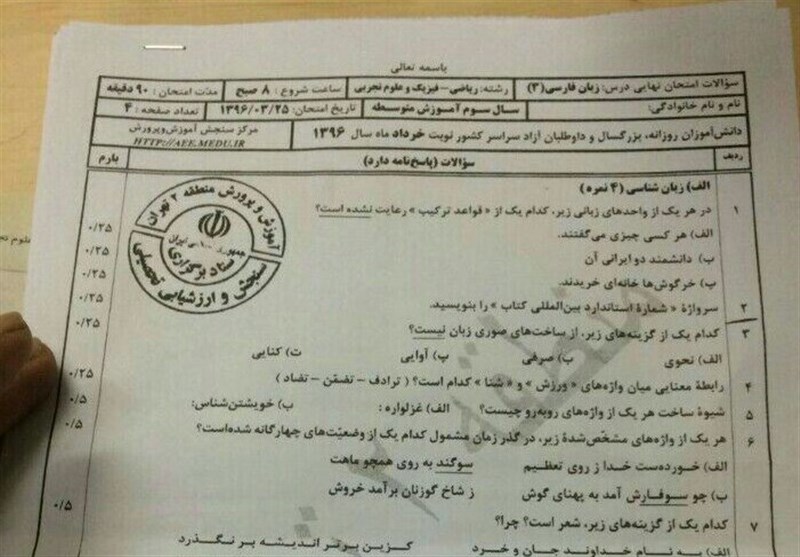 باسمه تعالی
سؤالات امتحان نهایی درس: زبان فارسی (۳) رشته: ریاضی - فیزیک و علوم تجربی ساعت شروع : ۸ صبح مدت امتحان : ۹۰ دقیقه
نام و نام خانوادگی: سال سوم آموزش متوسطه تاریخ امتحان: ۱۳۹۶/۰۳/۲۵ تعداد صفحه : ۴
دانش‌آموزان روزانه، بزرگسال و داوطلبان آزاد سراسر کشور نوبت خرداد ماه سال ۱۳۹۶ مرکز سنجش آموزش‌وپرورش
HTTP://AEE.MEDU.IR
ردیف سؤالات (پاسخ‌نامه دارد) بارم
الف) زبان شناسی (۴ نمره)
۱ در هر یک از واحدهای زبانی زیر، کدام یک از « قواعد ترکیب » رعایت نشده است؟
الف) هر کسی چیزی می‌گفتند. ۰/۲۵
ب) دانشمند دو ایرانی آن ۰/۲۵
پ) خرگوش‌ها خانه‌ای خریدند. ۰/۲۵
۲ سرواژهٔ « شمارهٔ استاندارد بین‌المللی کتاب » را بنویسید. ۰/۲۵
۳ کدام یک از گزینه‌های زیر، از ساخت‌های صوری زبان نیست؟ ۰/۲۵
الف) نحوی ب) صرفی پ) آوایی ت) کنایی
۴ رابطهٔ معنایی میان واژه‌های « ورزش » و « شنا » کدام است؟ ( ترادف - تضمّن - تضاد ) ۰/۲۵
۵ شیوهٔ ساخت هر یک از واژه‌های روبه‌رو چیست؟ الف) غزلواره : ب) خویشتن‌شناس: ۰/۵
۶ هر یک از واژه‌های مشخّص‌شدهٔ زیر، در گذر زمان مشمول کدام یک از وضعیّت‌های چهارگانه شده‌است؟ ۰/۵
الف) خورده‌ست خدا ز روی تعظیم سوگند به روی همچو ماهت
ب) چو سوفارش آمد به پهنای گوش ز شاخ گوزنان برآمد خروش
۷ کدام یک از گزینه‌های زیر، شعر است؟ چرا؟ ۰/۵
الف) به نام خداوند جان و خرد کزین برتر اندیشه بر نگذرد
آموزش و پرورش منطقه ۲ تهران
ستاد برگزاری
سنجش و ارزشیابی تحصیلی
منطقه ۲